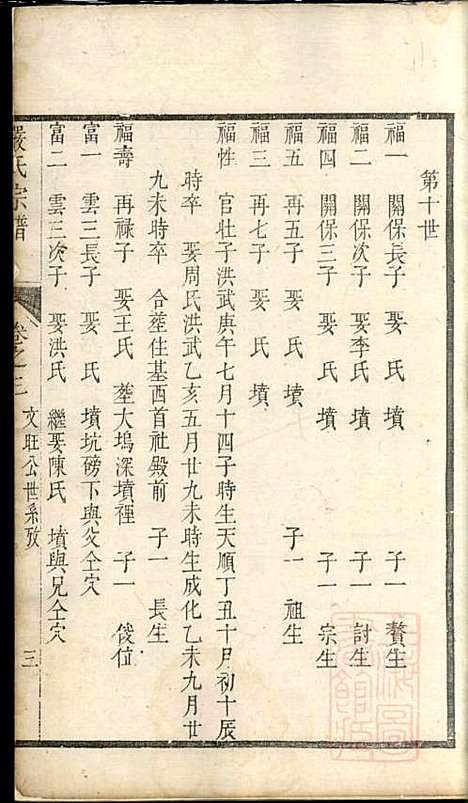 第十世
福一 關保長子 娶 氏 墳 子一 贅生
福二 關保次子 娶李氏 墳 子一 討生
福四 關保三子 娶 氏 墳 子一 宗生
福五 再五子 娶 氏 墳 子一 祖生
福三 再七子 娶 氏 墳
福牲 官壯子洪武庚午七月十四子時生天順丁丑十月初十辰
時卒 娶周氏洪武乙亥五月廿九未時生成化乙未九月廿
九未時卒 合塟住基西首社殿前 子一 長生
福壽 再祿子 娶王氏 塟大塢深墳裡 子一 俊位
富一 雲三長子 娶 氏 墳坑磅下與父仝穴
富二 雲三次子 娶洪氏 繼娶陳氏 墳與兄仝穴
嚴氏宗譜 卷之三 文旺公世系攷 三